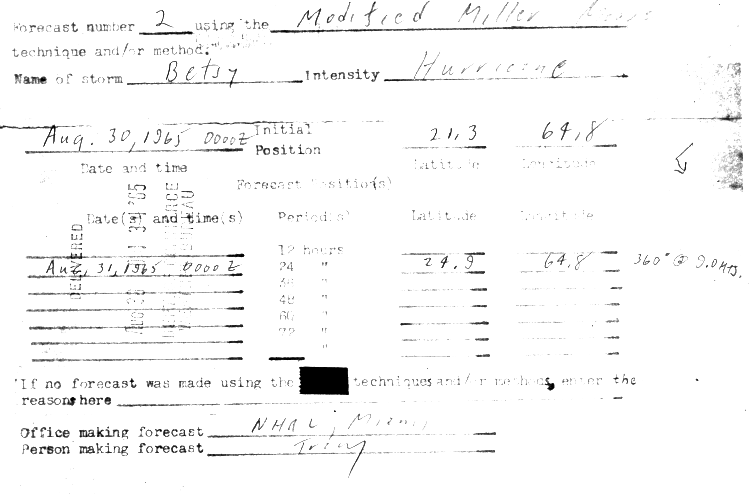 Forecast number 2 using the Modified Miller
technique and/or method.
Name of storm Betsy Intensity Hurricane
Aug. 30, 1965 0000Z Initial Position 21.3 64.8
Date and time Latitude Longitude
Forecast Position(s)
Date(s) and time(s) Period(s) Latitude Longitude
12 hours
Aug, 31, 1965 0000Z 24 " 24.9 64.8 360° @ 9.0 kts.
36 "
48 "
60 "
72 "
"
DELIVERED
If no forecast was made using the techniques and/or methods, enter the
reasons here
Office making forecast NHRL, Miami
Person making forecast